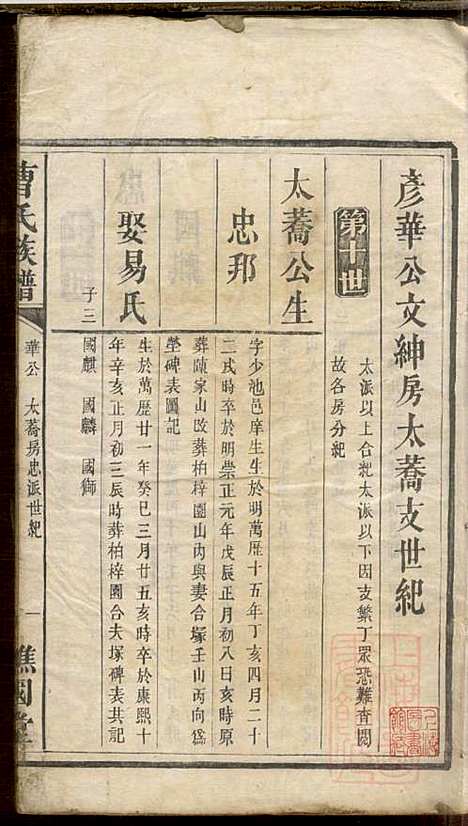 彦華公文紳房太蕎支世紀
第十世
太派以上合紀太派以下因支繁丁眾恐難查閱
故各房分紀
太蕎公生
忠邦
字少池邑庠生生於明萬歷十五年丁亥四月二十
二戌時卒於明崇正元年戊辰正月初八日亥時原
葬陳家山改葬柏梓園山內與妻合塚壬山丙向為
塋碑表圖記
娶易氏
生於萬歷廿一年癸巳三月廿五亥時卒於康熙十
年辛亥正月初三辰時葬柏梓園合夫塚碑表其記
子三
國麒 國麟 國獅
曹氏族譜
華公 太蕎房忠派世紀
一
譙國堂